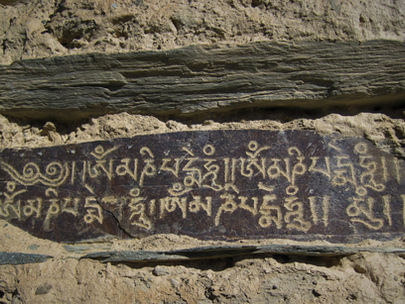 ༄༅། །ༀ་མ་ཎི་པ་དྨེ་ཧཱུྃ། །ༀ་མ་ཎི་པ་དྨེ་ཧཱུྃ། །
ༀ་མ་ཎི་པ་དྨེ་ཧཱུྃ། །ༀ་མ་ཎི་པ་དྨེ་ཧཱུྃ། །